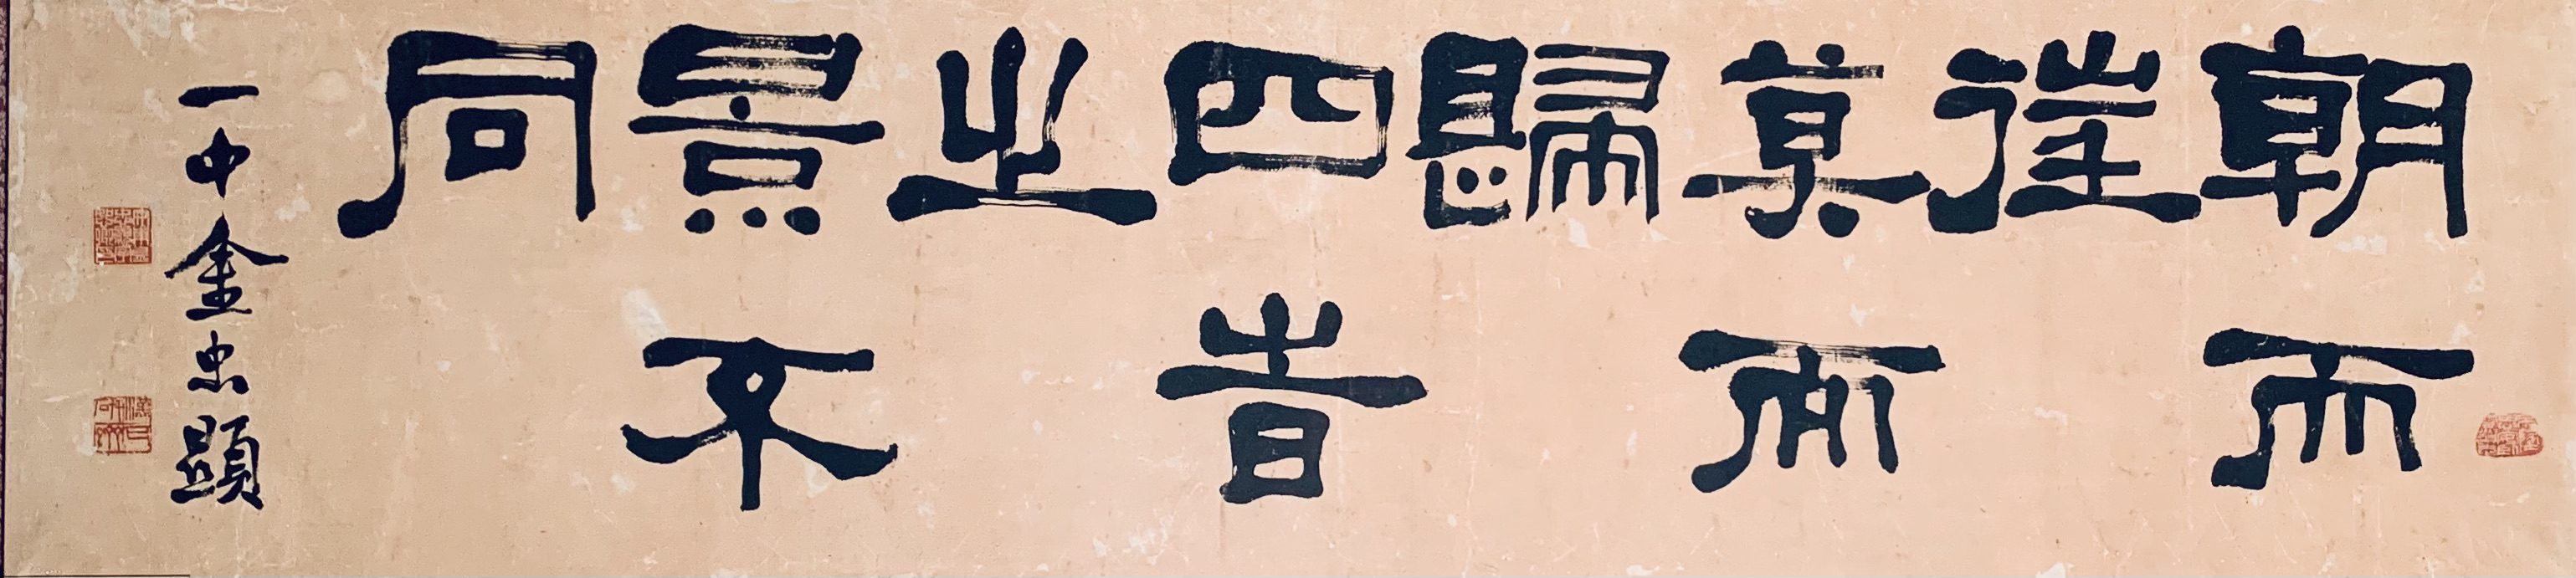 朝而
往
莫而
歸
四旹
之
景不
同
一中金忠顯